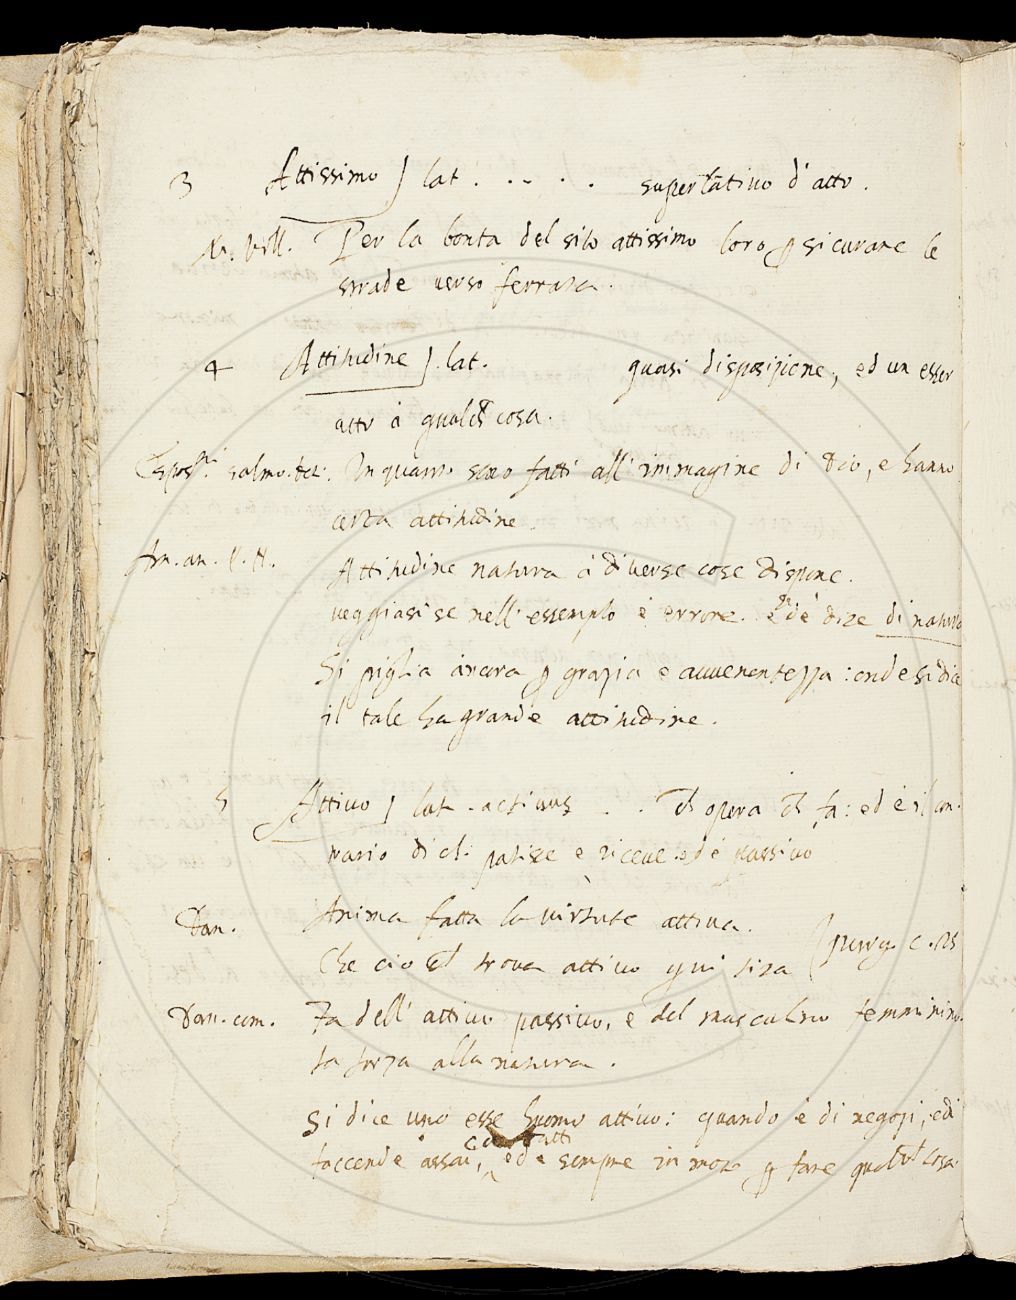 3 Attissimo ] lat . . . . . superlativo d'atto .
M. Vill. Per la bonta del sito attissimo loro p sicurare le
strade verso ferrara .
4 Attitudine ]. lat. quasi disposizione, ed un esser
atto à qualche cosa .
salmo. In quanto sono fatti all'immagine di Dio, e hanno
certa attitudine .
Am. an. Attitudine natura à diverse cose dispone .
veggiasi se nell'essemplo è errore. e dè dire di natura
Si piglia ancora p grazia e avvenentezza : onde si dice
il tale ha grande attitudine .
5 Attivo ] lat . activus . . ch opera ch fa : ed è il con-
trario di ch patisce e riceve ed è passivo
Dan. Anima fatta la virtute attiva .
Che ciò ch trova attivo quivi tira (purg. c. 25
Dan. com. Fa dell'attivo passivo, e del masculino femminino.
fa forza alla natura .
Si dice uno esse huomo attivo : quando è di negozi, e di
faccende assai, ed e sempre in moto p fare qualch cosa .